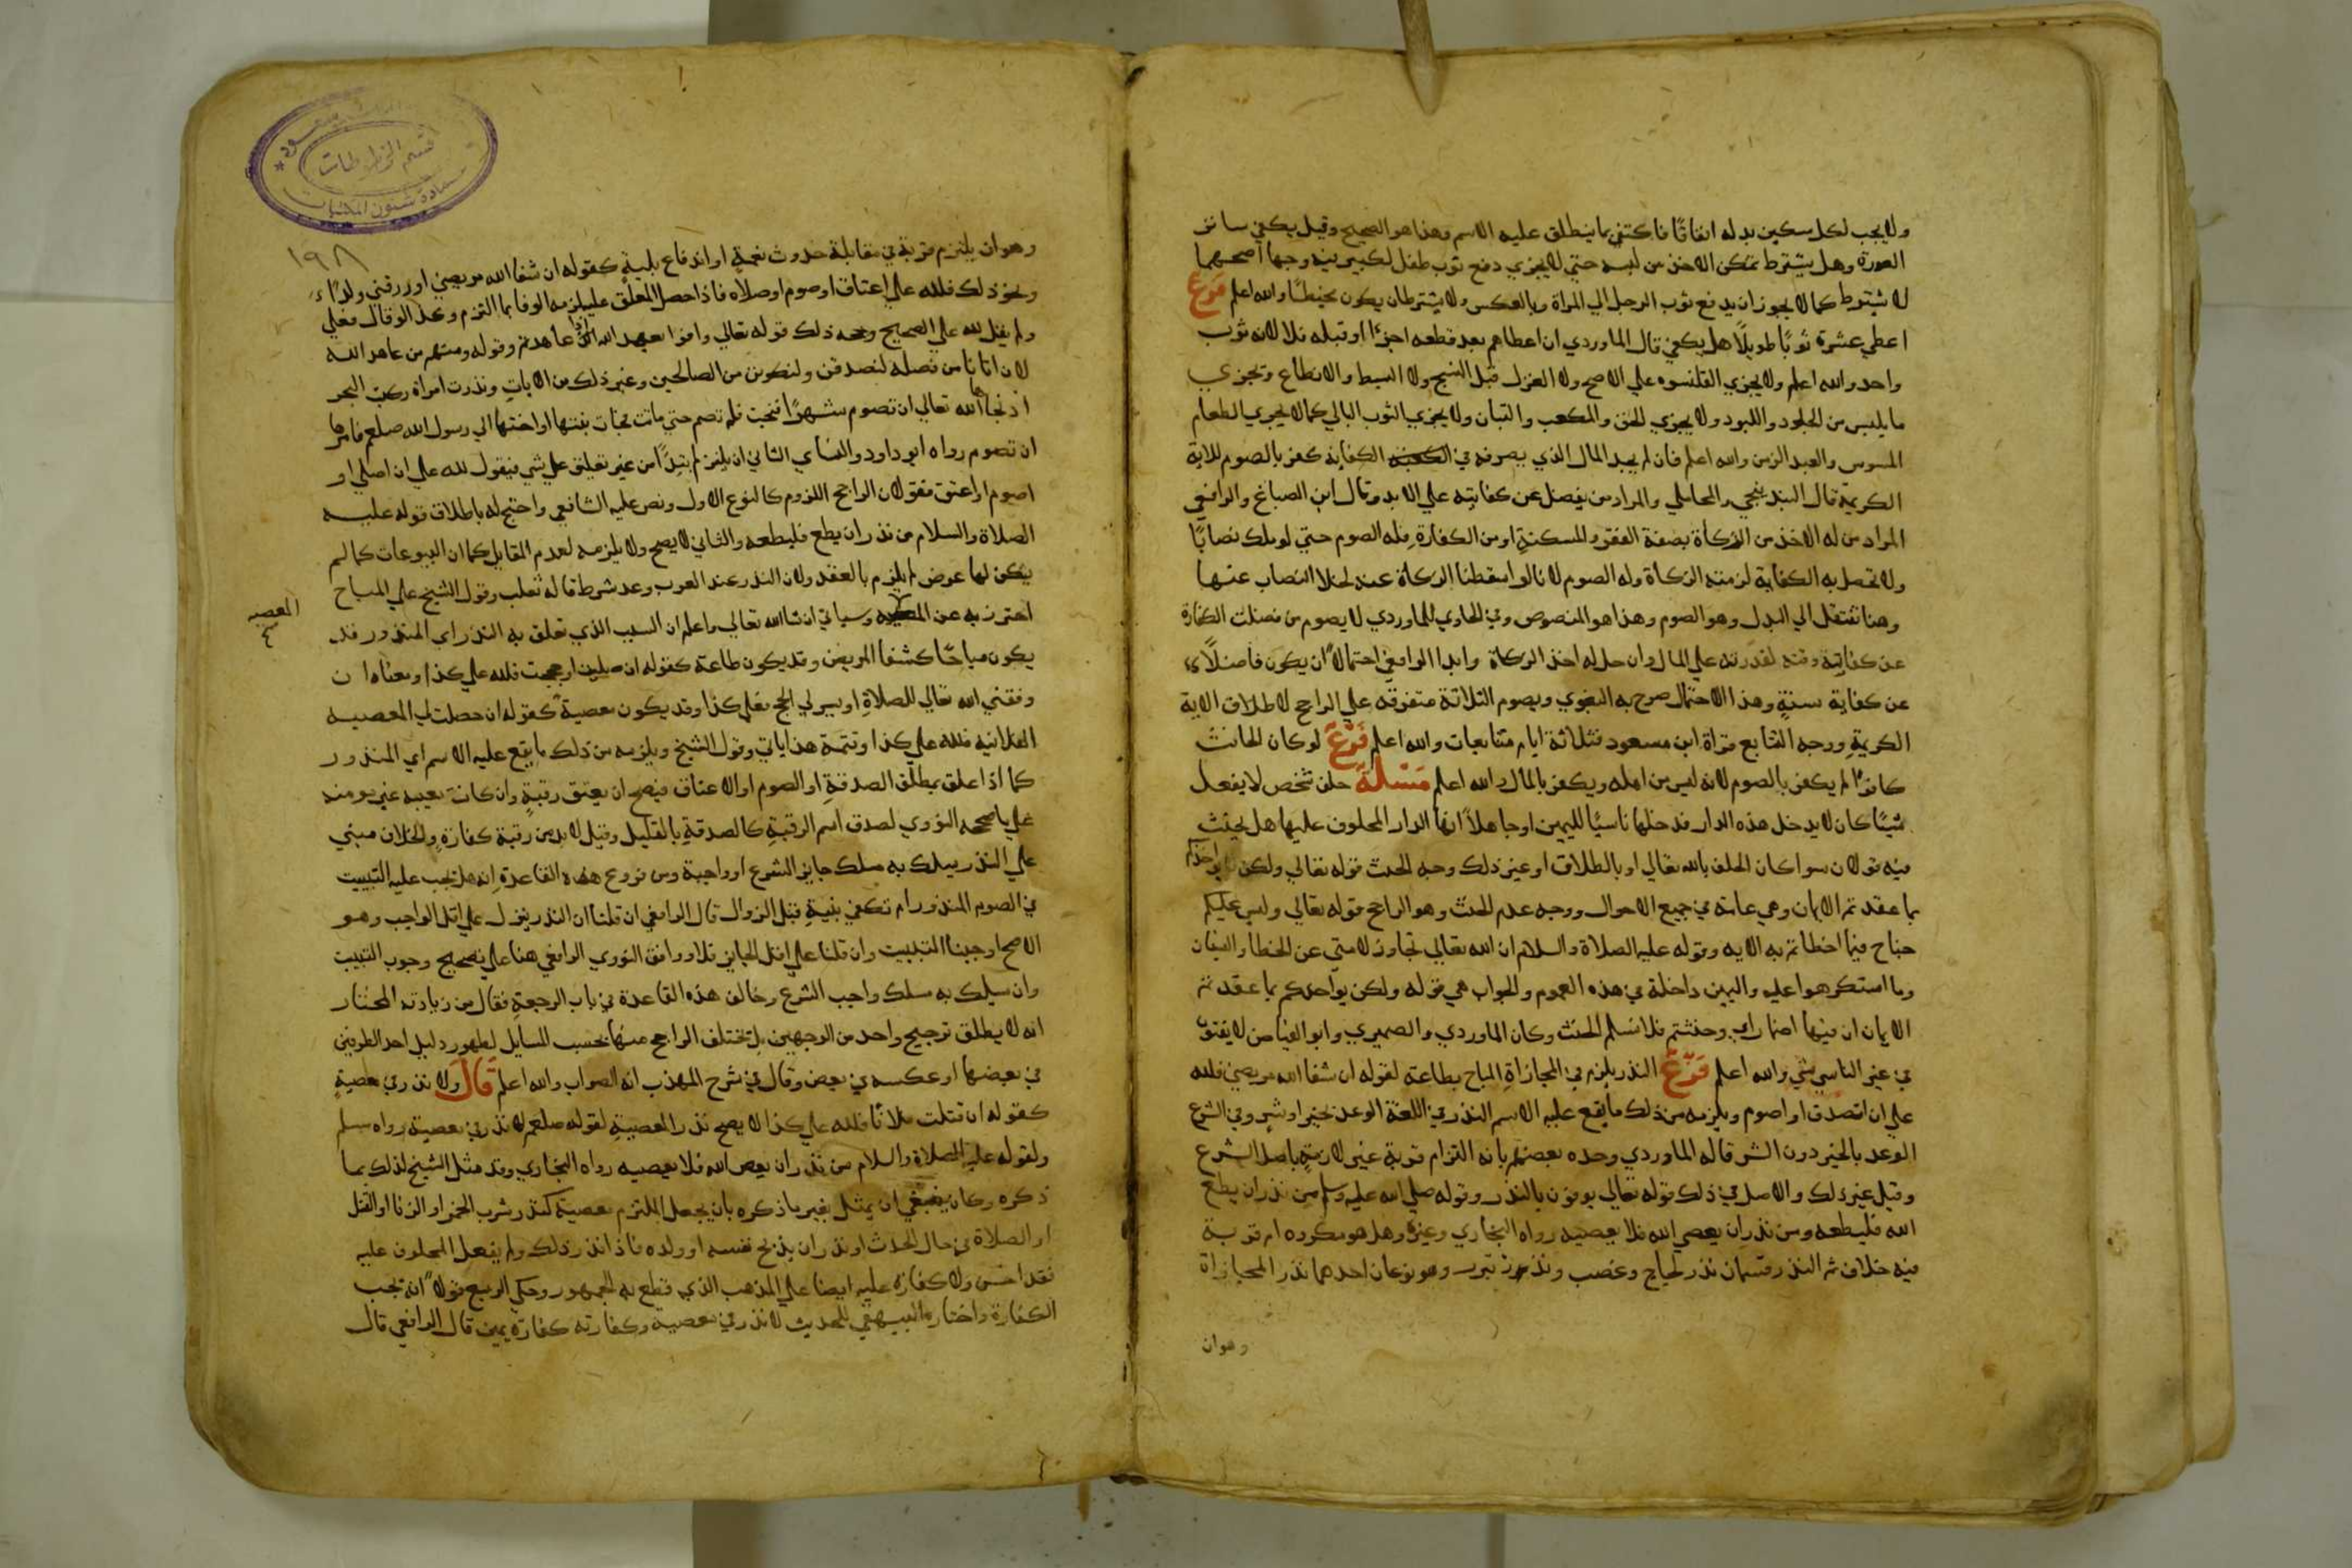 ولا يجب لكل مسكين بدله اتفاقا فاكتفي بما ينطلق عليه الاسم وهذا هو الصحيح وقيل يكفي ساتر
العورة وهل يشترط تمكن الاخذ من لبسه حتي لا يجزي دفع ثوب طفل لكبير فيه وجها اصحهما
لا شيترط كما لا يجوز ان يدفع ثوب الرجل الي المراة وبالعكس ولا يشترط ان يكون مخيطا والله اعلم فرع
اعطي عشرة ثوبًا طويلاً هل يكفي قال الماوردي ان اعطاهم بعد قطعه اجزا او قبله فلا لانه ثوب
واحد والله اعلم ولا يجزي القلنسوه علي الاصح ولا الغزل قبل النسج ولا البسط والانطاع وتجزي
ما يلبس من الجلود واللبود ولا يجزي الخف والمكعب والتبان ولا يجزي الثوب البالي كما لا يجزي الطعام
المسوس والعبد الزمن والله اعلم فان لم يجد المال الذي يصرفه في الكفاية كفر بالصوم للاية
الكريمة قال البندنيجي والمحاملي والمراد من يفضل عن كفايته علي الابد وقال ابن الصباغ والرافعي
المراد من له الاخذ من الزكاة بصفة الفقر والمسكنة او من الكفارة فله الصوم حتي لو ملك نصابًا
ولا تحصل به الكفاية لزمته الزكاة وله الصوم لانا لو اسقطنا الزكاة عنه لخلا النصاب عنها
وهنا ننتقل الي البدل وهو الصوم وهذا هو المنصوص وفي الحاوي للماوردي لا يصوم من فضلت الكفارة
عن كفايته وقته لقدرته علي المال وان حل له اخذ الزكاة وابدا الرافعي احتمالاً ان يكون فاضلاً
عن كفاية سنةٍ وهذا الاحتمال صرح به البغوي ويصوم الثلاثة متفرقه علي الراجح لاطلاق الاية
الكريمةِ ووجه التتابع قراة ابن مسعود فثلاثة ايام متتابعات والله اعلم فرع لو كان الحانث
كافرًا لم يكفر بالصوم لانه ليس من اهله ويكفر بالمال والله اعلم مسئلة حلف شخص لا يفعل
شيئًا كان لا يدخل هذه الدار فدخلها ناسيًا لليمين او جاهلاً انها الدار المحلوف عليها هل يحنث
فيه قولان سوا كان الحلف بالله تعالي او بالطلاق او غير ذلك وجه الحنث قوله تعالي ولكن يواخذكم
بما عقدتم الايمان وهي عامة في جميع الاحوال ووجه عدم الحنث وهو الراجح قوله تعالي وليس عليكم
جناح فيما اخطاتم به الايه وقوله عليه الصلاة والسلام ان الله تعالي تجاوز لامتي عن الخطا والنسيان
وما استكرهوا عليه واليمين داخلة في هذه العموم والجواب هي قوله ولكن يواخذكم بما عقدتم
الايمان ان فيها اضمار اي وحنثتم فلا نسلم الحنث وكان الماوردي والصميري وابو الفياض لا يفتون
في غير الناسي بشي والله اعلم فرع النذر يلزم في المجازاةِ المباح بطاعته لقوله ان شفا الله مريضي فلله
علي ان اتصدق او اصوم ويلزمه من ذلك ما يقع عليه الاسم النذر في اللغة الوعد بخير او شر وفي الشرع
الوعد بالخير دون الشر قاله الماوردي وحده بعضهم بانه التزام قربة غير لازمةٍ باصل الشرع
وقيل غير ذلك والاصل في ذلك قوله تعالي يوفون بالنذر وقوله صلي الله عليه وسلم من نذر ان يطع
الله فليطعه ومن نذر ان يعصي الله فلا يعصيه رواه البخاري وغيره وهل هو مكروه ام قربة
فيه خلاف ثم النذر قسمان نذر لجاج وغضب ونذر تبرر وهو نوعان احدهما نذر المجازاة
وهوان
قسم المخطوطات
عمادة شئون المكتبات
١٩٨
وهو ان يلتزم قربة في مقابلة حدوث نعمةٍ او اندفاع بليةٍ كقوله ان شفا الله مريضي او رزقني ولدًا
ونحو ذلك فلله علي اعتاق او صوم او صلاه فاذا حصل المعلق عليه لزمه الوفا بما التزم وكذا لو قال فعلي
ولم يقل لله علي الصحيح وحجه ذلك قوله تعالي واوفوا بعهد الله اذا عاهدتم وقوله ومنهم من عاهد الله
لان اتانا من فضله لنصدقن ولنكونن من الصالحين وغير ذلك من الايات ونذرت امراة ركبت البحر
ان نجاها الله تعالي ان تصوم شهرًا فنجت فلم تصم حتي ماتت فجات بنتها او اختها الي رسول الله صلعم فامرها
ان تصوم رواه ابو داود والنساي الثاني ان يلتزم ابتداً من غير تعليق علي شي فيقول لله علي ان اصلي او
اصوم او اعتق فقولان الراجح اللزوم كالنوع الاول ونص عليه الشافعي واحتج له باطلاق قوله عليه
الصلاة والسلام من نذر ان يطع فليطعه والثاني لا يصح ولا يلزمه لعدم المقابل كما ان البيوعات كما لم
يكن لها عوض لم يلزم بالعقد ولان النذر عند العرب وعد شرط قاله ثعلب وقول الشيخ علي المباح
احترز به عن وسياتي ان شا الله تعالي واعلم ان السبب الذي تعلق به النذر اي المنذور قد
المعصيه
يكون مباحًا كشفا المريض وقد يكون طاعة كقوله ان صليت او حججت فلله علي كذا ومعناه ان
وفقني الله تعالي للصلاةِ او يسر لي الحج فعلي كذا وقد يكون معصية كقوله ان حصلت لي المعصيه
الفلانيه فلله علي كذا وتتمة هذا ياتي وقول الشيخ ويلزمه من ذلك ما يقع عليه الاسم اي المنذور
كما اذا علق بمطلق الصدقةِ او الصوم او الاعتاق فيصح ان يعتق رقبةٍ وان كانت معيبه غير مومنه
علي ما صححه النووي لصدق اسم الرقبةِ كالصدقةِ بالقليل وقيل لا بد من رقبة كفارةٍ والخلاف مبني
علي النذر يسلك به مسلك جايز الشرع او واجبه ومن فروع هذه القاعدة انه هل يجب عليه التبييت
في الصوم المنذور ام تكفي بنيةٍ قبل الزوال قال الرافعي ان قلنا ان النذر ينزل علي اقل الواجب وهو
الاصح اوجبنا التبييت وان قلنا علي اقل الجايز فلا ووافق النووي الرافعي هنا علي تصحيح وجوب التبييت
وان سلك به مسلك واجب الشرع وخالف هذه القاعدة في باب الرجعةِ فقال من زيادته المختار
انه لا يطلق ترجيح واحد من الوجهين بل تختلف الراجح منها بحسب المسايل لظهور دليل احد الطرفين
في بعضها او عكسه في بعض وقال في شرح المهذب انه الصواب والله اعلم قال ولا نذر في معصيةٍ
كقوله ان قتلت فلانًا فلله علي كذا لا يصح نذر المعصيةِ لقوله صلعم لا نذر في معصية رواه مسلم
ولقوله عليه الصلاة والسلام من نذر ان يعص الله فلا يعصيه رواه البخاري وقد مثل الشيخ لذلك بما
ذكره وكان ينبغي ان يمثل بغير ما ذكره بان يجعل الملتزم معصية كنذر شرب الخمر او الزنا او القتل
او الصلاة في حال الحدث او نذر ان يذبح نفسه او ولده فاذا نذر ذلك ولم يفعل المحلوف عليه
فقد احسن ولا كفارة عليه ايضا علي المذهب الذي قطع به الجمهور وحكي الربيع قولاً انه تجب
الكفارة واختاره البيهقي للحديث لا نذر في معصية وكفارته كفارة يمين قال الرافعي قال